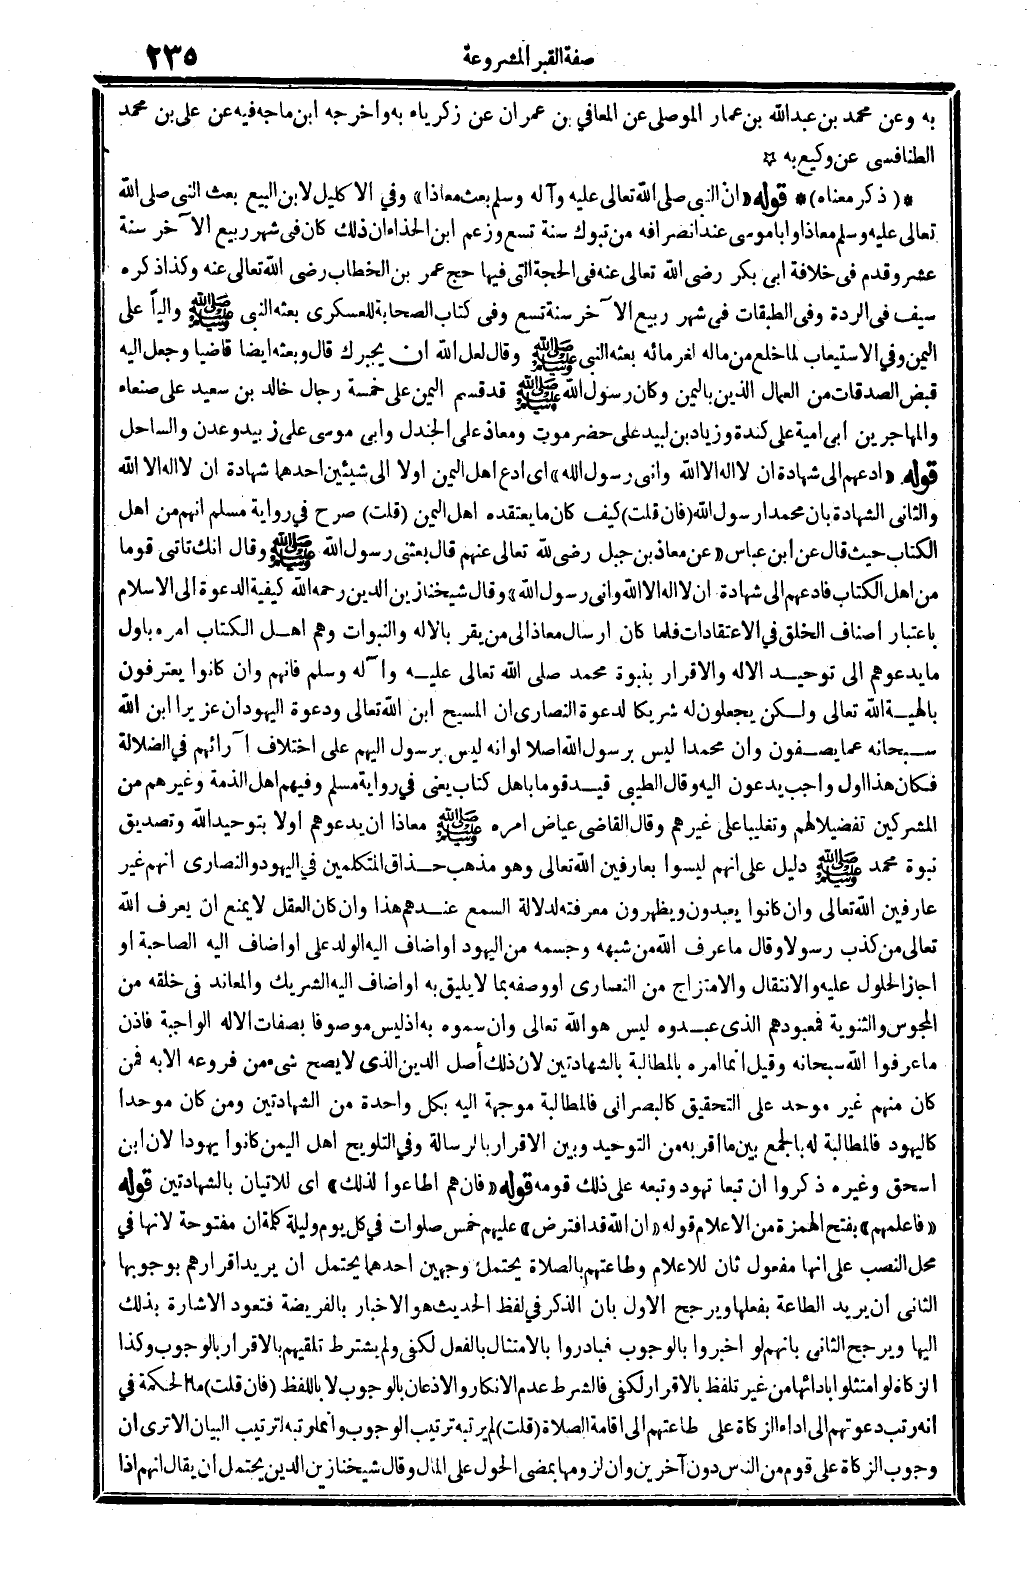 صفة القبر المشروعة
٢٣٥
به وعن محمد بن عبدالله بن عمار الموصلى عن المعافي بن عمران عن زكرياء به واخرجه ابن ماجه فيه عن على بن محمد
الطنافسى عن وكيع به ☆
*(ذكر معناه)* قوله «ان النبى صلى الله تعالى عليه وآله وسلم بعث معاذا» وفي الاكليل لابن البيع بعث النبى صلى الله
تعالى عليه وسلم معاذا وابا موسى عند انصرافه من تبوك سنة تسع وزعم ابن الحذاء ان ذلك كان فى شهر ربيع الآخر سنة
عشر وقدم فى خلافة ابى بكر رضى الله تعالى عنه فى الحجة التى فيها حج عمر بن الخطاب رضى الله تعالى عنه وكذا ذكره
سيف فى الردة وفى الطبقات فى شهر ربيع الآخر سنة تسع وفى كتاب الصحابة للعسكرى بعثه النبى ﷺ والياً على
اليمن وفي الاستيعاب لما خلع من ماله لغرمائه بعثه النبى ﷺ وقال لعل الله ان يجبرك قال وبعثه ايضا قاضيا وجعل اليه
قبض الصدقات من العمال الذين باليمن وكان رسول الله ﷺ قد قسم اليمن على خمسة رجال خالد بن سعيد على صنعاء
والمهاجر بن ابى امية على كندة وزياد بن لبيد على حضرموت ومعاذ على الجندل وابى موسى على زبيد وعدن والساحل
قوله «ادعهم الى شهادة ان لا اله الا الله وانى رسول الله» اى ادع اهل اليمن اولا الى شيئين احدهما شهادة ان لا اله الا الله
والثانى الشهادة بان محمدا رسول الله (فان قلت) كيف كان ما يعتقده اهل اليمن (قلت) صرح في رواية مسلم انهم من اهل
الكتاب حيث قال عن ابن عباس «عن معاذ بن جبل رضى لله تعالى عنهم قال بعثنى رسول الله ﷺ وقال انك تاتى قوما
من اهل الكتاب فادعهم الى شهادة ان لا اله الا الله وانى رسول الله» وقال شيخنا زين الدين رحمه الله كيفية الدعوة الى الاسلام
باعتبار اصناف الخلق في الاعتقادات فلما كان ارسال معاذ الى من يقر بالاله والنبوات وهم اهل الكتاب امره باول
ما يدعوهم الى توحيد الاله والاقرار بنبوة محمد صلى الله تعالى عليه وآله وسلم فانهم وان كانوا يعترفون
بالهية الله تعالى ولكن يجعلون له شريكا لدعوة النصارى ان المسيح ابن الله تعالى ودعوة اليهود ان عزيرا ابن الله
سبحانه عما يصفون وان محمدا ليس برسول الله اصلا او انه ليس برسول اليهم على اختلاف آرائهم في الضلالة
فكان هذا اول واجب يدعون اليه وقال الطيبى قيد قوما باهل كتاب يعنى في رواية مسلم وفيهم اهل الذمة وغيرهم من
المشركين تفضيلا لهم وتغليبا على غيرهم وقال القاضى عياض امره ﷺ معاذا ان يدعوهم اولا بتوحيد الله وتصديق
نبوة محمد ﷺ دليل على انهم ليسوا بعارفين الله تعالى وهو مذهب حذاق المتكلمين في اليهود والنصارى انهم غير
عارفين الله تعالى وان كانوا يعبدون ويظهرون معرفته لدلالة السمع عندهم هذا وان كان العقل لا يمنع ان يعرف الله
تعالى من كذب رسولا وقال ما عرف الله من شبهه وجسمه من اليهود او اضاف اليه الولد على او اضاف اليه الصاحبة او
اجاز الحلول عليه والانتقال والامتزاج من النصارى او وصفه بما لا يليق به او اضاف اليه الشريك والمعاند فى خلقه من
المجوس والثنوية فمعبودهم الذى عبدوه ليس هو الله تعالى وان سموه به اذ ليس موصوفا بصفات الاله الواجبة فاذن
ما عرفوا الله سبحانه وقيل انما امره بالمطالبة بالشهادتين لان ذلك أصل الدين الذى لا يصح شىء من فروعه الا به فمن
كان منهم غير موحد على التحقيق كالنصرانى فالمطالبة موجهة اليه بكل واحدة من الشهادتين ومن كان موحدا
كاليهود فالمطالبة له بالجمع بين ما اقر به من التوحيد وبين الاقرار بالرسالة وفي التلويح اهل اليمن كانوا يهودا لان ابن
اسحق وغيره ذكروا ان تبعا تهود وتبعه على ذلك قومه قوله «فان هم اطاعوا لذلك» اى للاتيان بالشهادتين قوله
«فاعلمهم» بفتح الهمزة من الاعلام قوله «ان الله قد افترض» عليهم خمس صلوات في كل يوم وليلة كلمة ان مفتوحة لانها في
محل النصب على انها مفعول ثان للاعلام وطاعتهم بالصلاة يحتمل وجهين احدهما يحتمل ان يريد اقرارهم بوجوبها
الثانى أن يريد الطاعة بفعلها ويرجح الاول بان الذكر في لفظ الحديث هو الاخبار بالفريضة فتعود الاشارة بذلك
اليها ويرجح الثانى بانهم لو اخبروا بالوجوب فبادروا بالامتثال بالفعل لكفى ولم يشترط تلقيهم بالاقرار بالوجوب وكذا
الزكاة لو امتثلوا بادائها من غير تلفظ بالاقرار لكفى فالشرط عدم الانكار والاذعان بالوجوب لا باللفظ (فان قلت) ما الحكمة في
انه رتب دعوتهم الى اداء الزكاة على طاعتهم الى اقامة الصلاة (قلت) لم يرتبه ترتيب الوجوب وانما رتبه لترتيب البيان الا ترى ان
وجوب الزكاة على قوم من الناس دون آخرين وان لزومها بمضى الحول على المال وقال شيخنا زين الدين يحتمل أن يقال انهم اذا